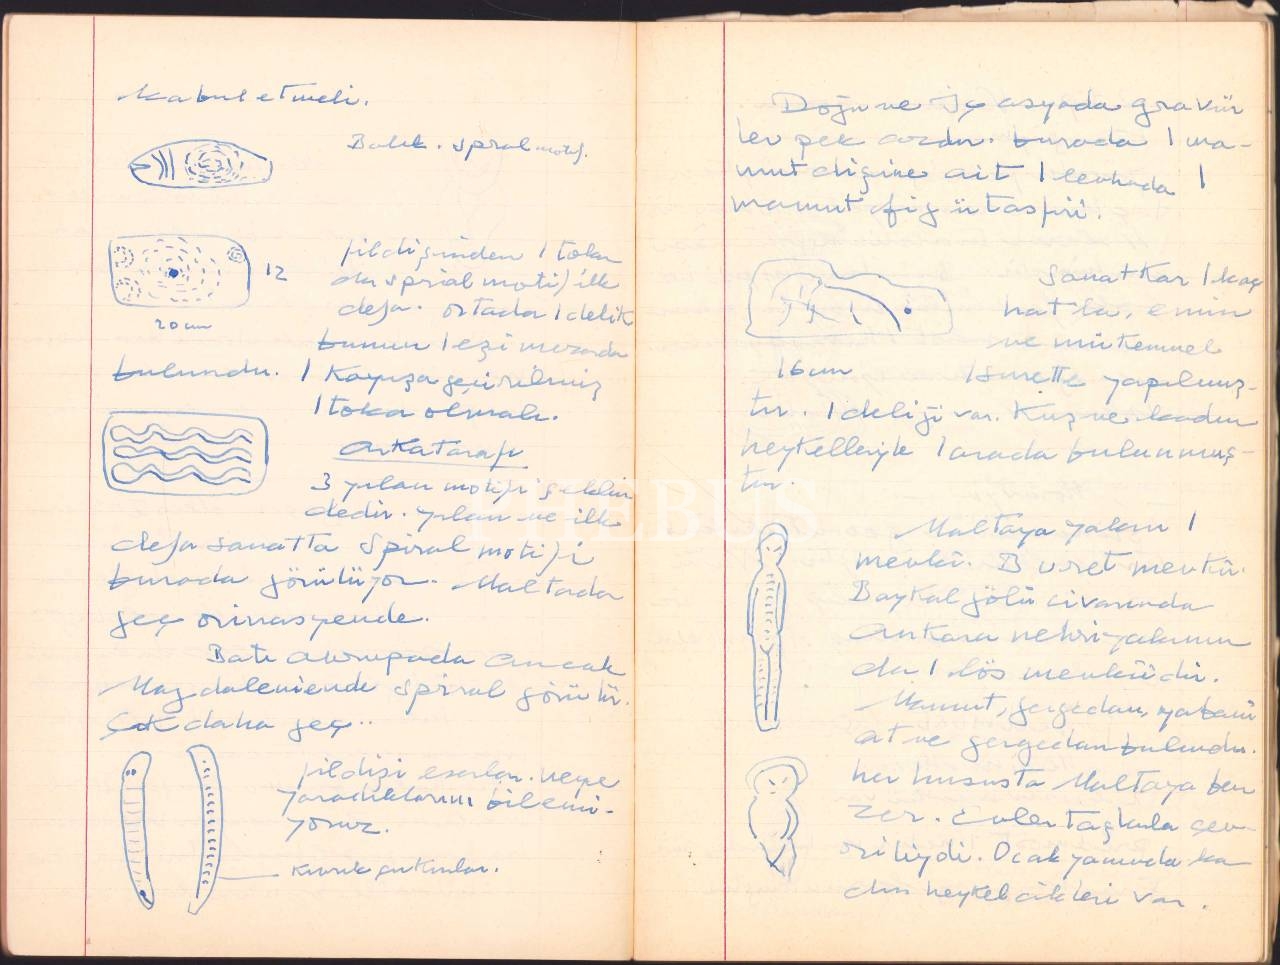 Kabul etmeli.
Balık. Spiral motif.
fildişinden 1 toka
da spiral motifi ilk
defa. ortada 1 delik
12
20 cm
bunun 1 eşi mezarda
bulundu. 1 Kayışa geçirilmiş
1 toka olmalı.
Arka tarafı
3 yılan motifi şeklin
dedir. yılan ve ilk
defa sanatta spiral motifi
burada görülüyor. Maltada
geç orinasyende.
Batı avrupada ancak
Magdaleniende spiral görülür.
Çok daha geç..
fildişi eserler. neye
yaradıklarını bilemi-
yoruz.
Kıvrık çıkıntılar.
Doğu ve İç asyada gravür
ler pek azdır. burada 1 ma-
mut dişine ait 1 levhada 1
mamut figürü
Sanatkar 1 kaç
hatla, emin
ve mükemmel
16 cm
1 surette yapılmış-
tır. 1 deliği var. Kuş ve kadın
heykelleriyle 1 arada bulunmuş-
tur.
Maltaya yakın 1
mevki. Buret mevkii.
Baykal gölü civarında
Ankara nehri yakının
da 1 lös mevkiidir.
Mamut, gergedan, yabani
at ve gergedan bulundu.
her hususta Maltaya ben
zer. Evler taşlarla çev-
riliydi. Ocak yanında ka
dın heykelcikleri var.
PHEBUS